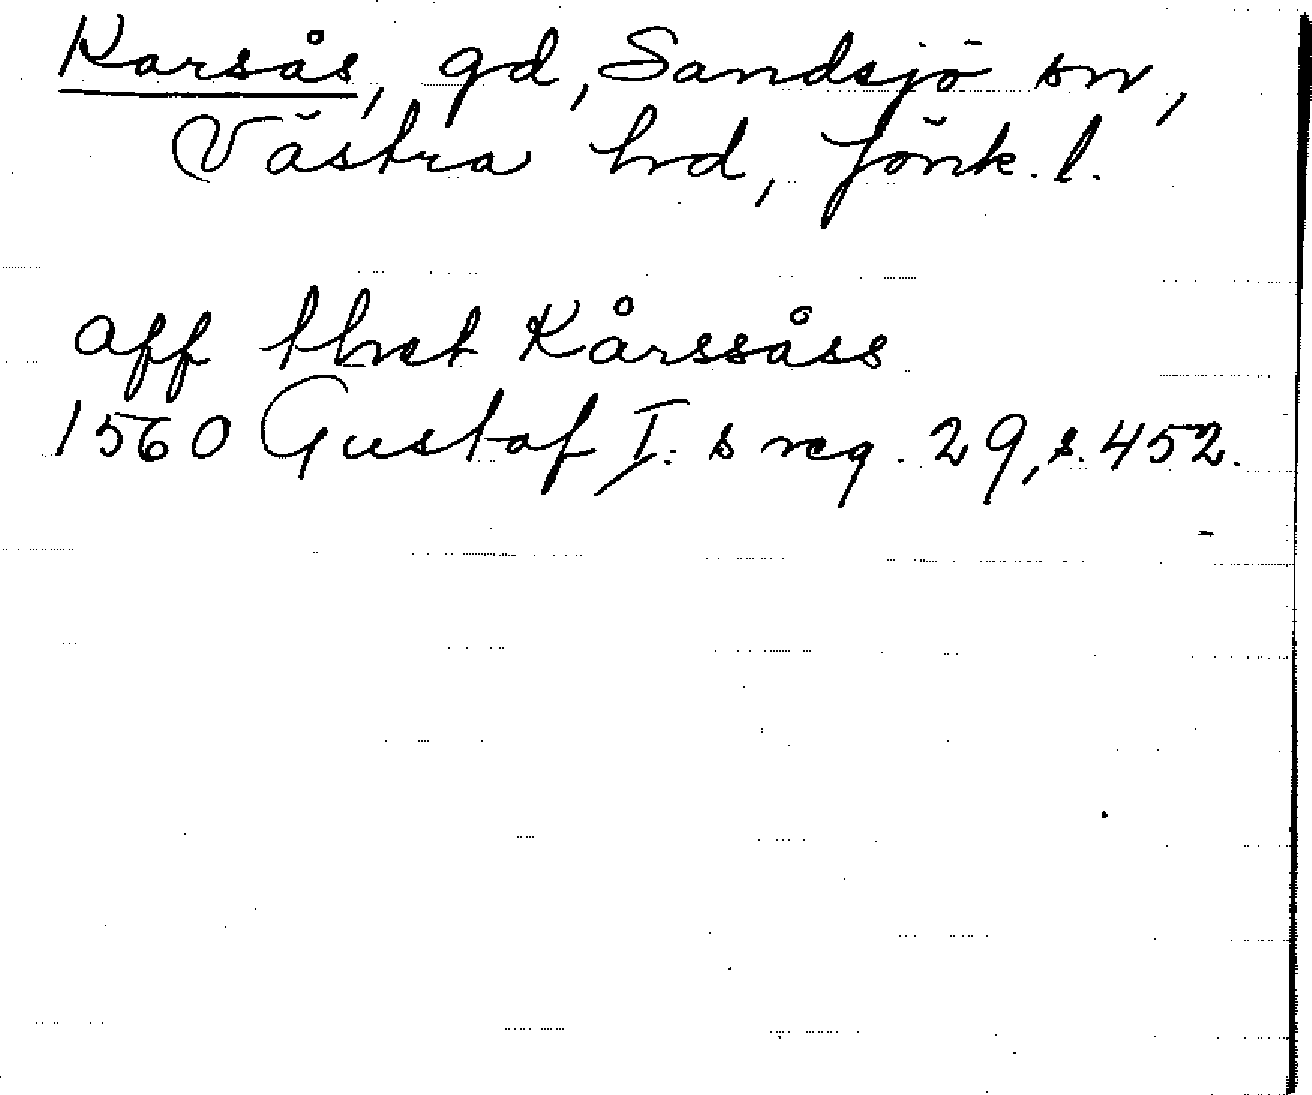 Karsås, gd, Sandsjö sn,
Västra hd, Jönk. l.
aff thet Kårssåss
1560 Gustaf I:s reg. 29, s. 452.